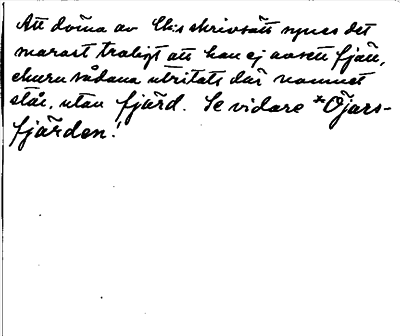 Att döma av Ekis skrivsätt synes det
marast troligt att han ej avsett fjäll,
churu sådana utritats där namnet
står, utan fjärd. Se vidare *Öjars-
fjärden!